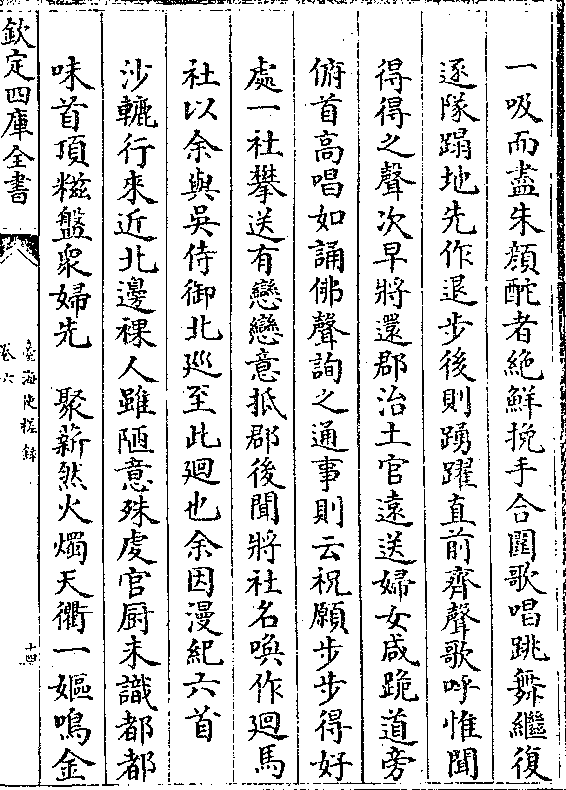 一吸而盡朱顔酡者絶鮮挽手合圍歌唱跳舞繼復
逐隊蹋地先作退步後則踴躍直前齊聲歌呼惟聞
得得之聲次早將還郡治土官遠送婦女咸跪道旁
俯首高唱如誦佛聲詢之通事則云祝願步步得好
處一社攀送有戀戀意抵郡後聞將社名喚作廻馬
社以余與吳侍御北廵至此廻也余因漫紀六首
沙轆行來近北邊裸人雖陋意殊䖍官厨未識都都
味首頂糍盤衆婦先　聚薪然火燭天衢一嫗鳴金
欽定四庫全書
臺海使槎錄
卷六
十四